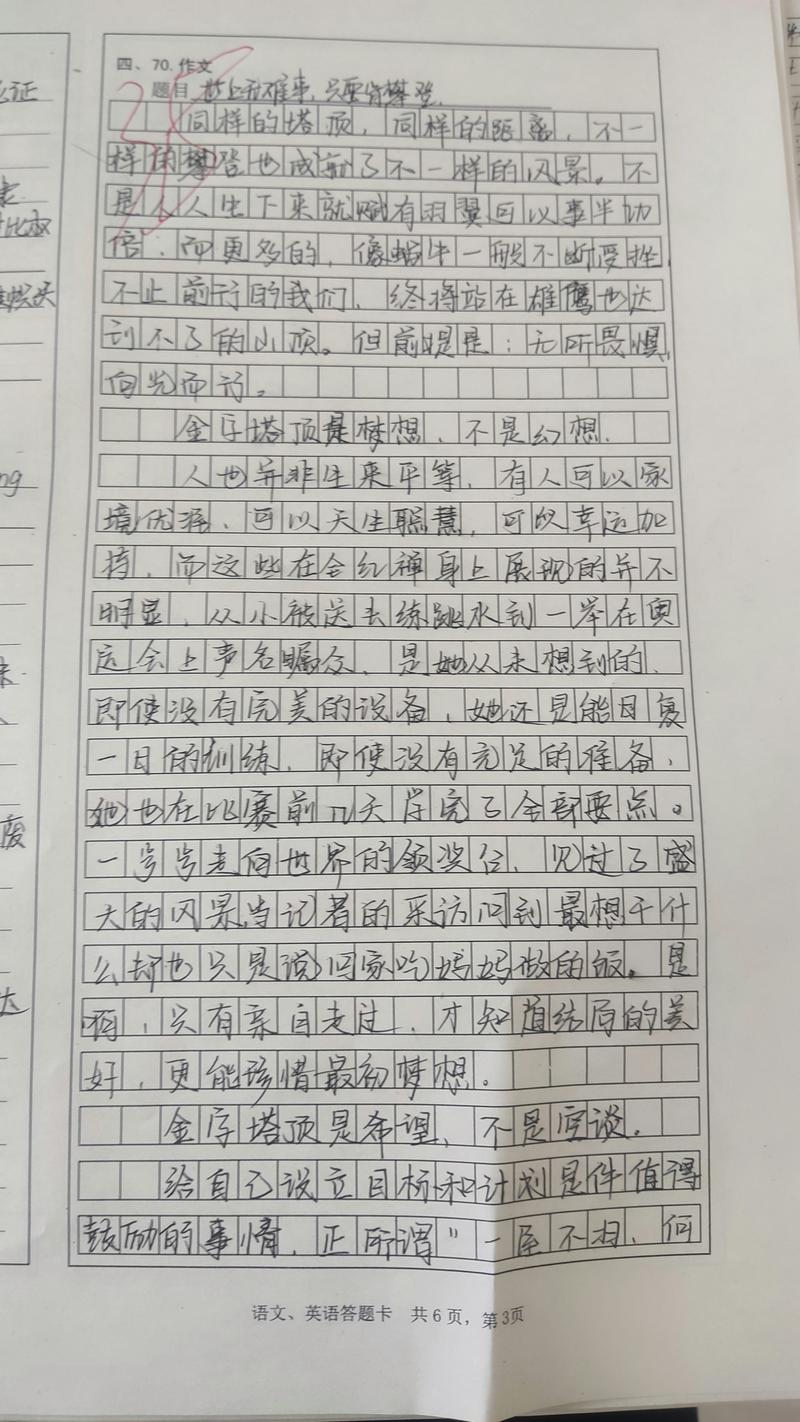 么证
四、70.作文
题目 世上无难事，只要肯攀登
同样的塔顶，同样的距离，不一
样的攀登也成就了不一样的风景。不
是人人生下来就赋有羽翼可以事半功
倍．而更多的，像蜗牛一般不断受挫
不止前行的我们、终将站在雄鹰也达
到不了的山顶。但前提是：无所畏惧，
向光而行。
金字塔顶是梦想．不是幻想．
人也并非生来平等，有人可以家
境优渥、可以天生聪慧，可以幸运加
持，而这些在全红禅身上展现的并不
明显，从小被送去练跳水到一举在奥
运会上声名瞩众、是她从未想到的、
即使没有完美的设备，她还是能日复
一日的训练．即使没有充足的准备，
她也在比赛前几天学完了全部要点。
一步步走向世界的领奖台、见过了盛
大的风景当记者的采访问到最想干什
么却也只是说回家吃妈妈做的饭。是
啊，只有亲自走过，才知道结局的美
好，更能珍惜最初梦想．
金字塔顶是希望、不是空谈．
给自己设立目标和计划是件值得
鼓励的事情，正所谓"一屋不扫、何
语文、英语答题卡 共6页，第3页